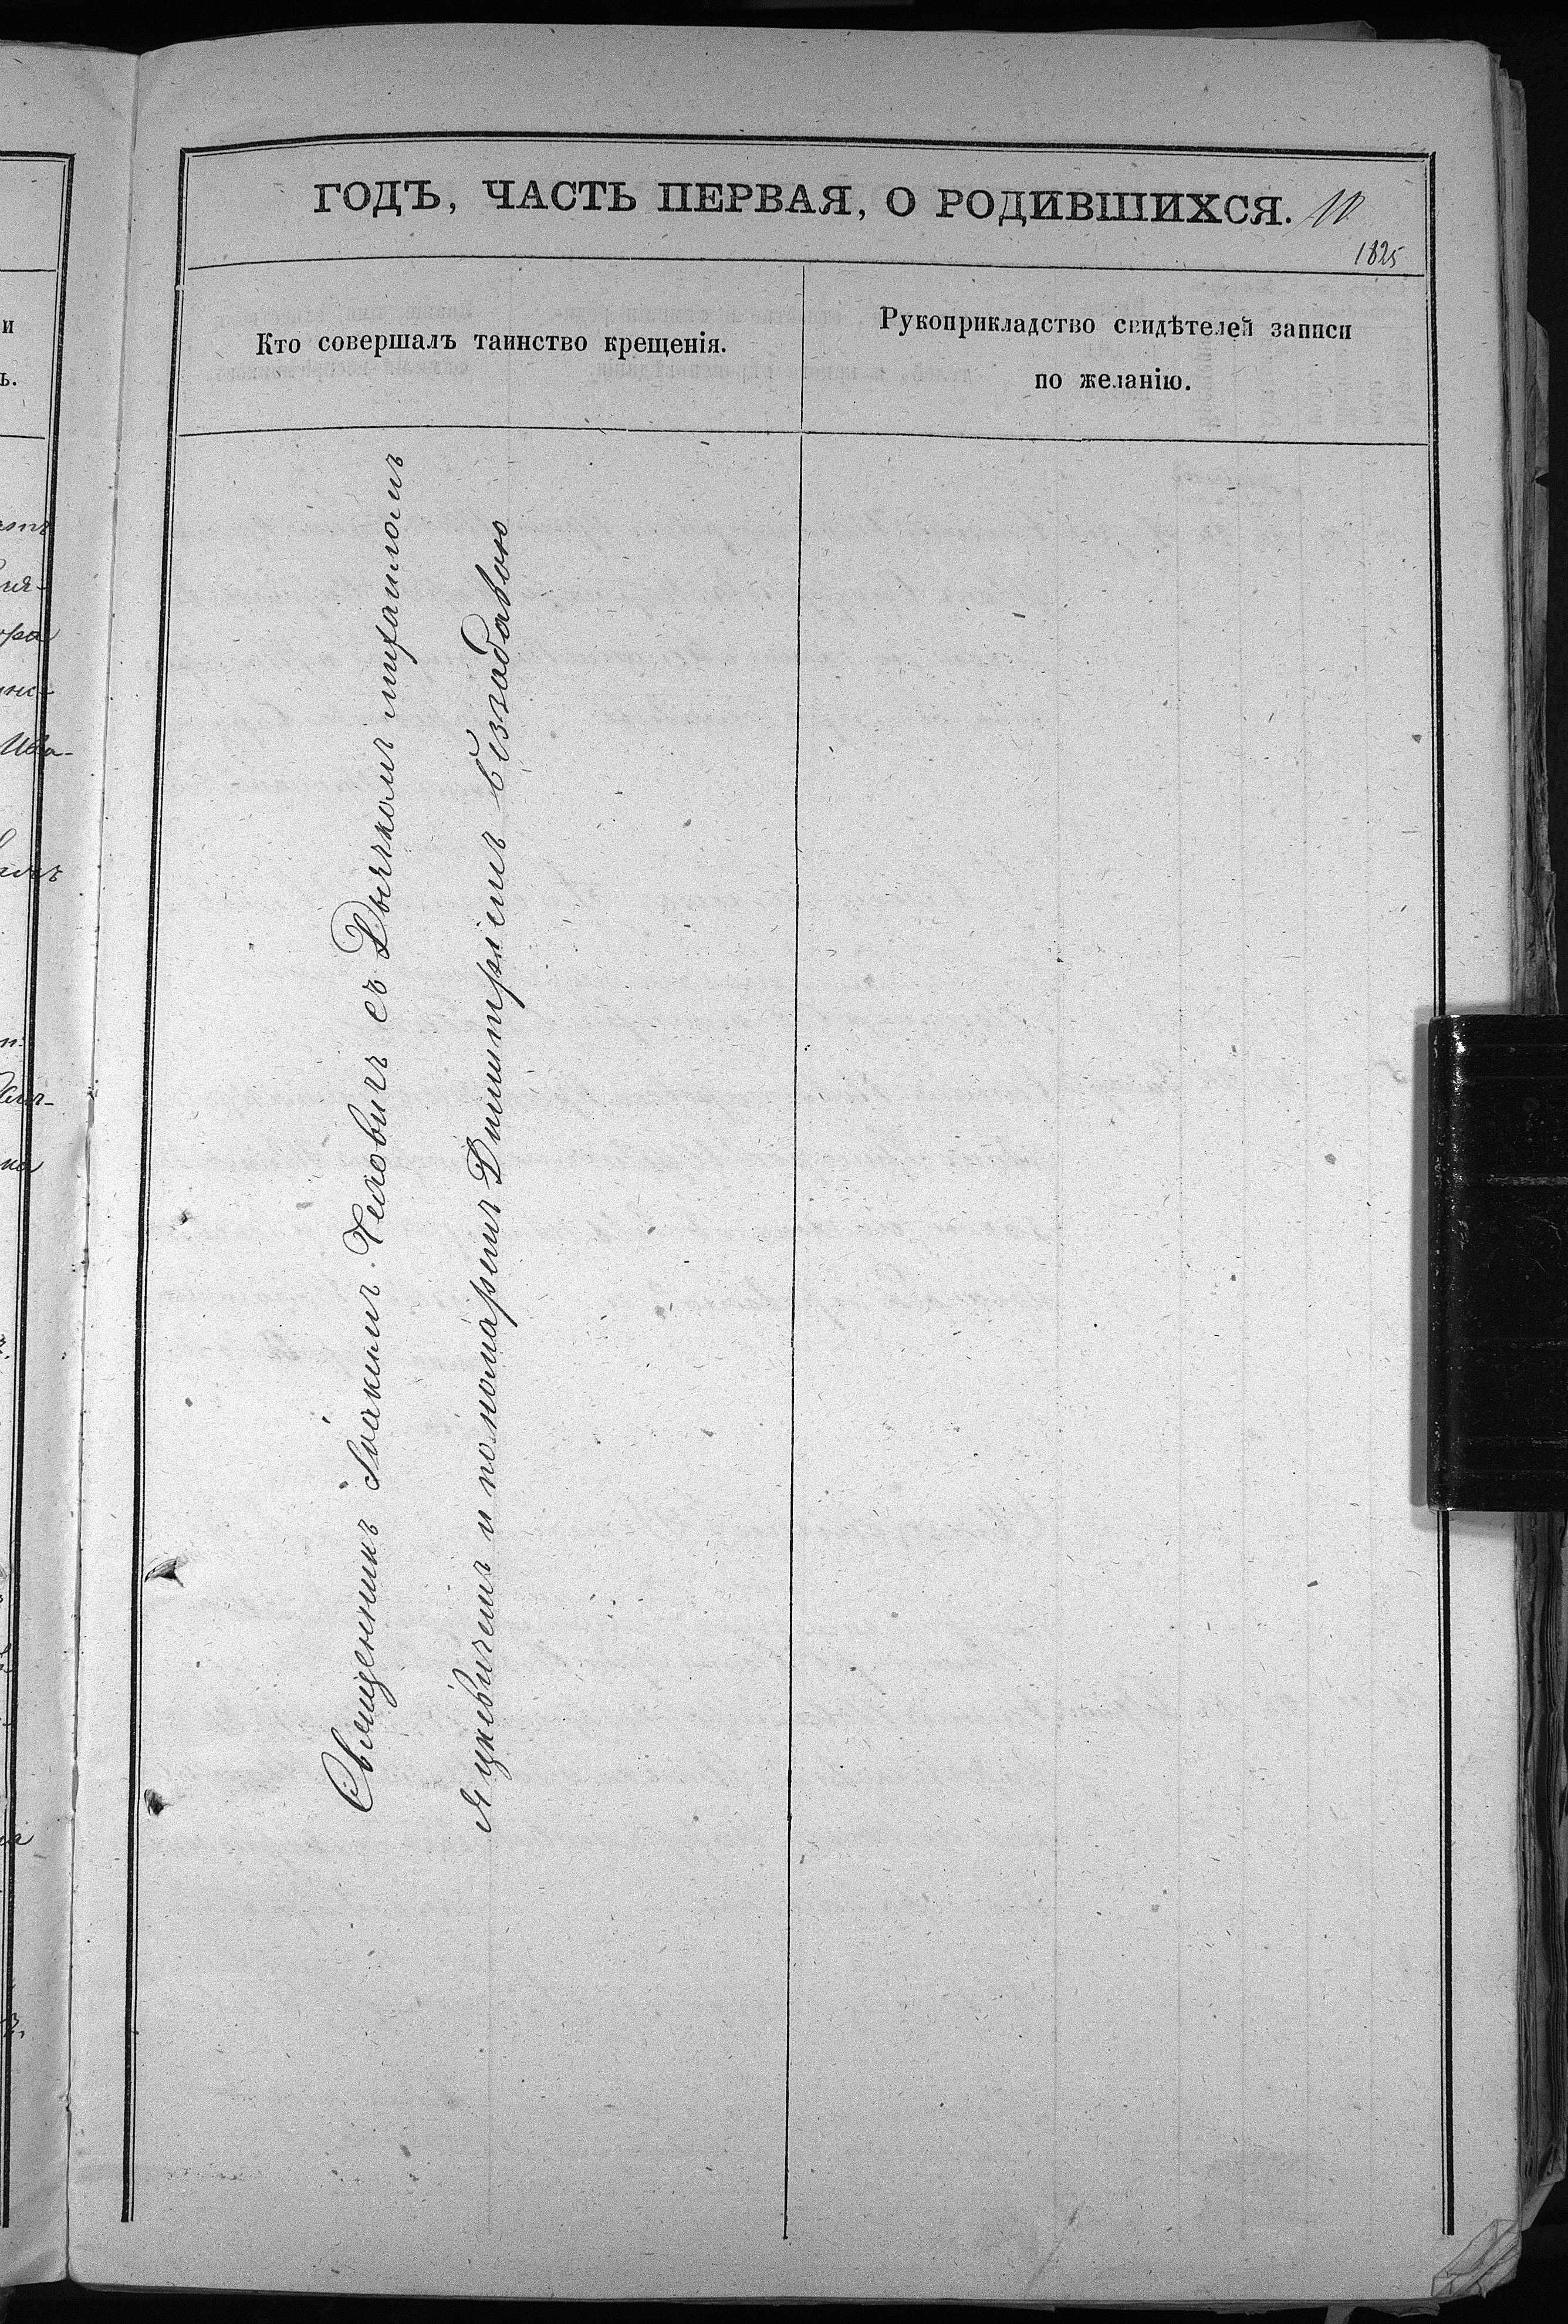 ГОДЪ, ЧАСТЬ ПЕРВАЯ, О РОДИВШИХСЯ. 10
1825
Кто совершалъ таинство крещенія.
Рукоприкладство свидѣтелей записи
по желанію.
Священникъ Іоакимъ Чеховичъ съ Дьячкомъ михаиломъ
Яцкевичемъ и пономаремъ Димитріемъ Беззабавою